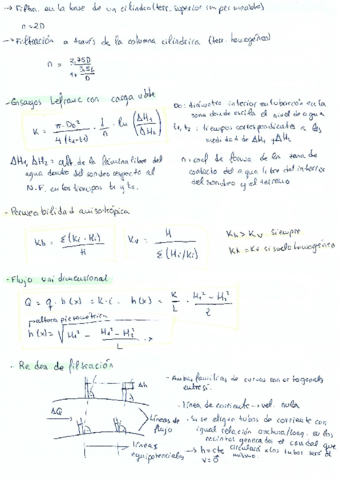 → Filtra. en la base de un cilindro (terr. superior impermeable)
n = 2D
→ Filtración a través de la columna cilíndrica (terr. homogéneo)
n =
- Ensayos Lefranc con carga vble
K = π·De² / 4(t₂-t₁) · 1/n · ln (ΔH₁/ΔH₂)
De: diámetro interior en tubería en la
zona donde oscila el nivel de agua
t₁, t₂: tiempos correspondientes a las
medidas de ΔH₁ y ΔH₂
ΔH₁, ΔH₂ = alt. de la lámina libre del
agua dentro del sondeo respecto al
N.F. en los tiempos t₁ y t₂.
n = coef de forma de la zona de
contacto del agua libre del interior
del sondeo y el terreno
- Permeabilidad anisotrópica
Kh = Σ(Ki·Hi) / H
Kv = H / Σ(Hi/Ki)
Kh > Kv siempre
Kh = Kv si suelo homogéneo
- Flujo unidimensional
Q = q·h(x) = K·i·h(x) = K/L · H₁² - H₂² / 2
altura piezométrica
h(x) = √H₁² - H₁² - H₂² / L · x
- Redes de filtración
Δh
ΔQ
Líneas de
flujo
líneas
equipotenciales
- Ambas familias de curvas son ortogonales
entre sí.
- línea de corriente → vel. nula
- Se eligen tubos de corriente con
igual relación anchura/long. en los
recintos generados el caudal que
circula x los tubos será el
mismo.
h = cte
v = 0